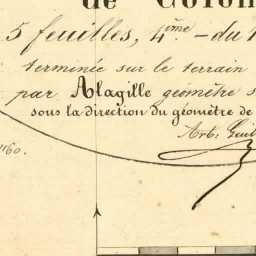 de Colom
5 feuilles, 4ème. - du 1
terminée sur le terrain
par Alagille géomètre s
sous la direction du géomètre de
Arb.
60.